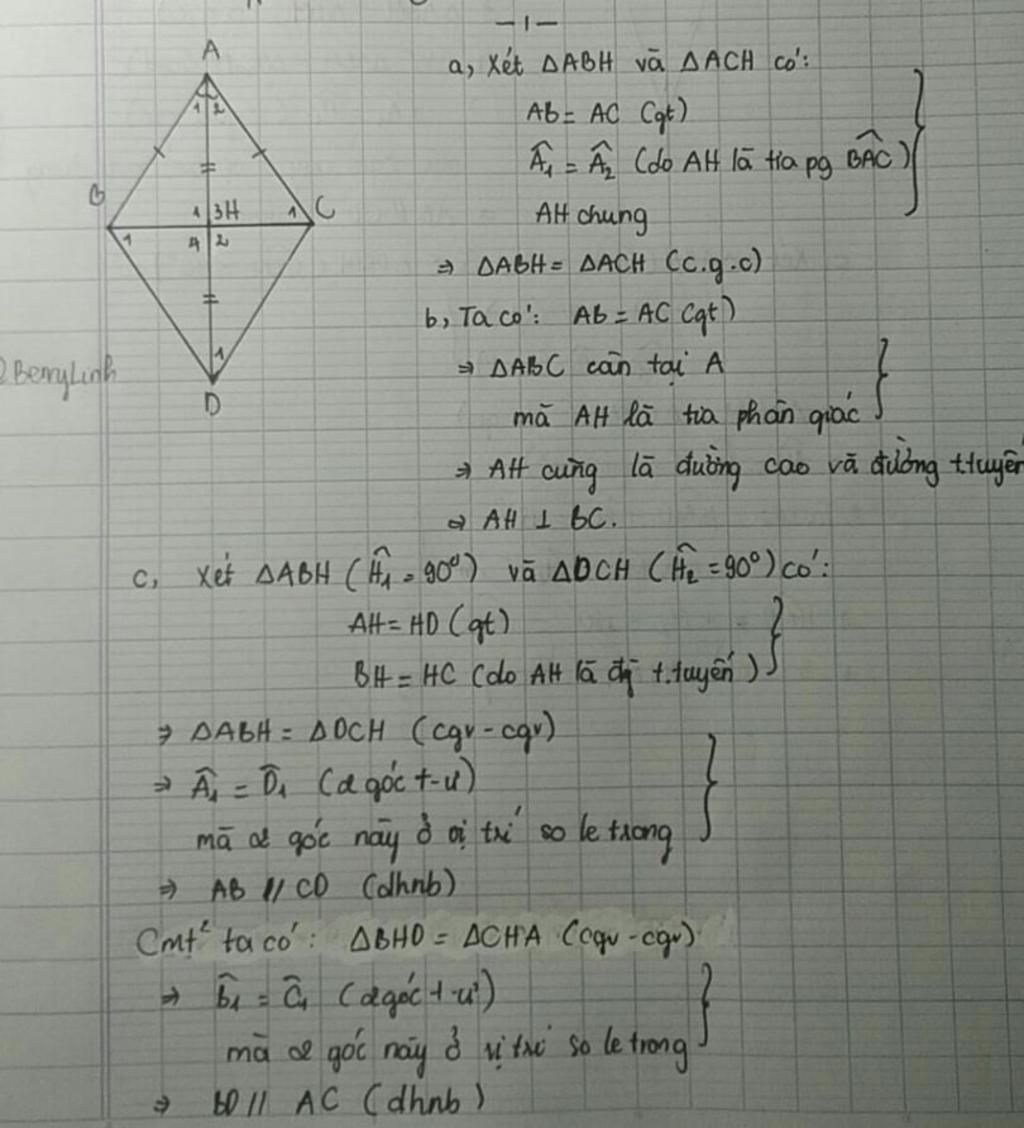 -1-
A
1 2
B
C
1 3H 1
1 4 2
1
D
BerryLinh
a, Xét ΔABH và ΔACH có:
AB = AC (gt)
Â₁ = Â₂ (do AH là tia pg BAC)
AH chung
⇒ ΔABH = ΔACH (c.g.c)
b, Ta có: AB = AC (gt)
⇒ ΔABC cân tại A
mà AH là tia phân giác
⇒ AH cũng là đường cao và đường t.tuyến
⇒ AH ⊥ BC.
c, Xét ΔABH (Ĥ₁ = 90⁰) và ΔDCH (Ĥ₂ = 90⁰) có:
AH = HD (gt)
BH = HC (do AH là đg t.tuyến)
⇒ ΔABH = ΔDCH (cgv - cgv)
⇒ Â₁ = D̂₁ (2 góc t-ư)
mà 2 góc này ở vị trí so le trong
⇒ AB // CD (dhnb)
Cmt² ta có: ΔBHD = ΔCHA (cgv - cgv)
⇒ B̂₁ = Ĉ₁ (2 góc t-ư)
mà 2 góc này ở vị trí so le trong
⇒ BD // AC (dhnb)